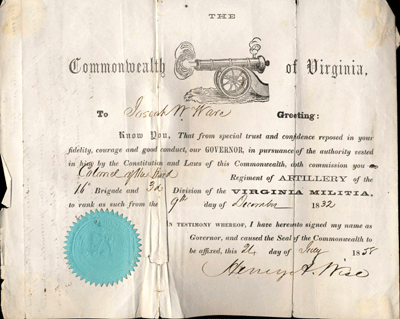 THE
Commonwealth of Virginia,
To Josiah W Ware Greeting:
KNOW YOU, That from special trust and confidence reposed in your
fidelity, courage and good conduct, our GOVERNOR, in pursuance of the authority vested
in him by the Constitution and Laws of this Commonwealth, doth commission you
Colonel of the Regiment of ARTILLERY of the
16 Brigade and 3d Division of the VIRGINIA MILITIA,
to rank as such from the 9th day of December 1832
IN TESTIMONY WHEREOF, I have hereunto signed my name as
Governor, and caused the Seal of the Commonwealth to
be affixed, this day of July 1858
Henry A. Wise